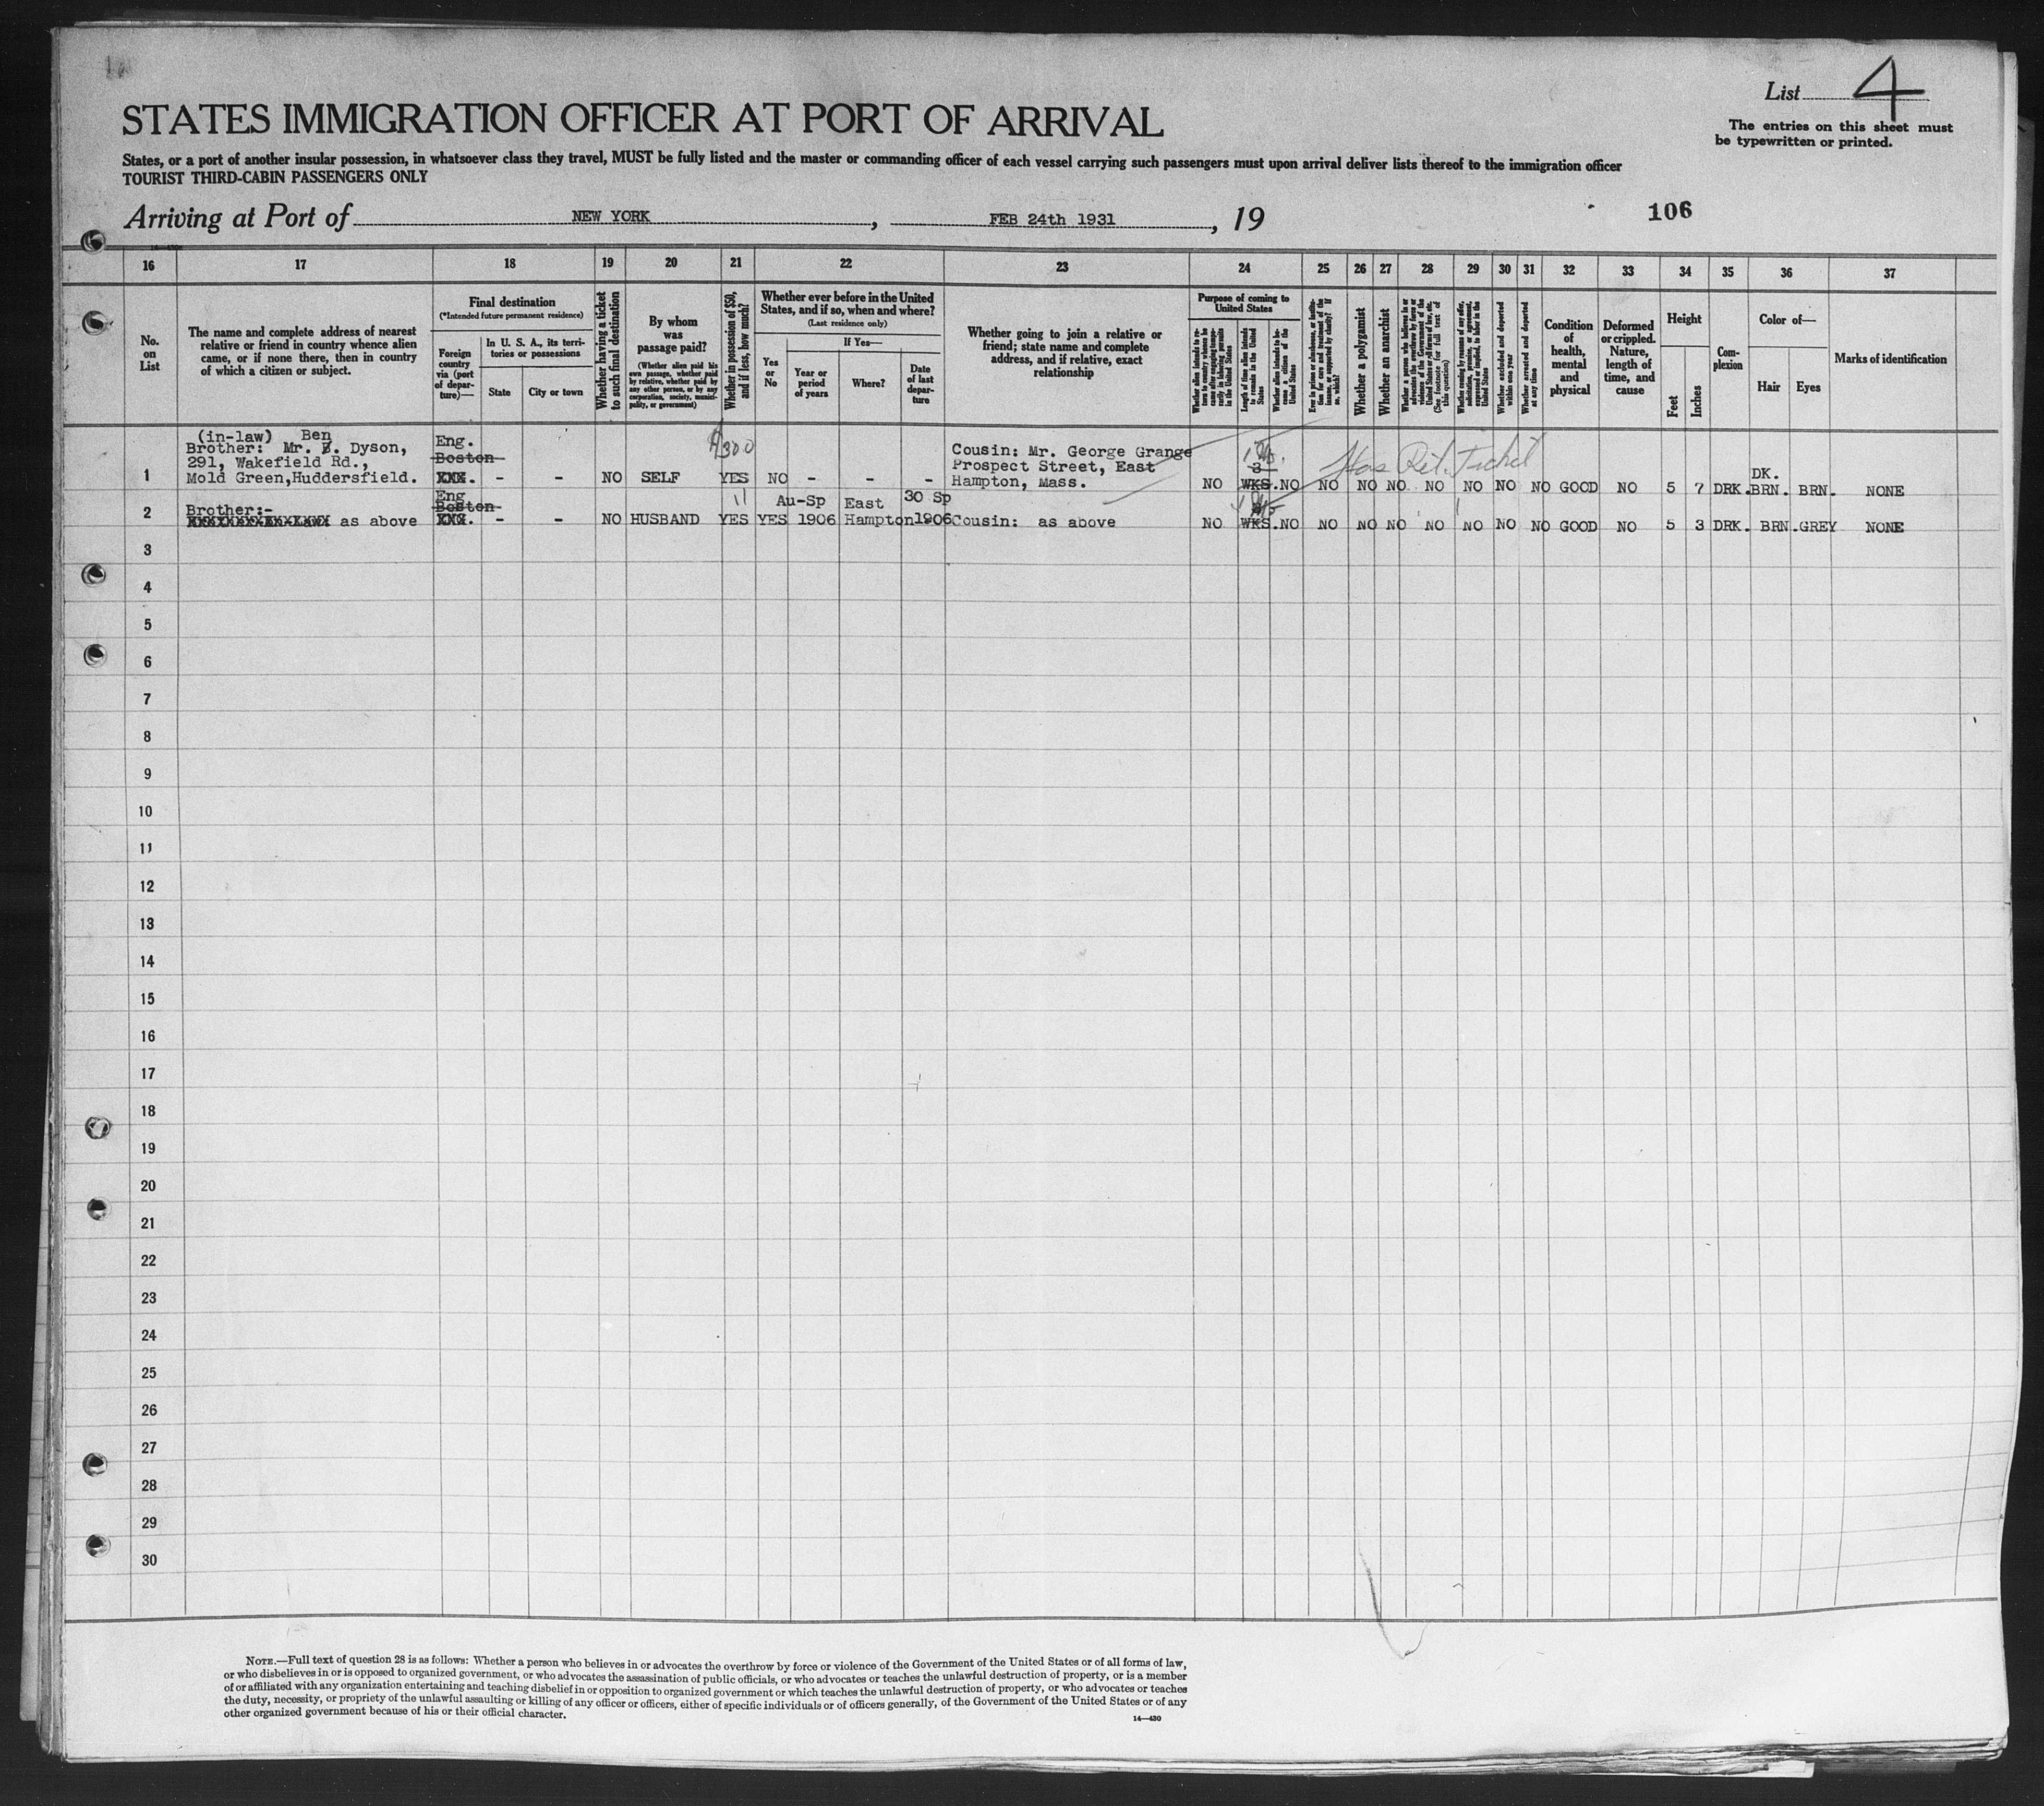 List 4
STATES IMMIGRATION OFFICER AT PORT OF ARRIVAL
The entries on this sheet must
be typewritten or printed.
States, or a port of another insular possession, in whatsoever class they travel, MUST be fully listed and the master or commanding officer of each vessel carrying such passengers must upon arrival deliver lists thereof to the immigration officer
TOURIST THIRD-CABIN PASSENGERS ONLY
Arriving at Port of NEW YORK, FEB 24th 1931, 19
106
16 17 18 19 20 21 22 23 24 25 26 27 28 29 30 31 32 33 34 35 36 37
No.
on
List
The name and complete address of nearest
relative or friend in country whence alien
came, or if none there, then in country
of which a citizen or subject.
Final destination
(*Intended future permanent residence)
Foreign
country
via (port
of depar-
ture)—
In U. S. A., its terri-
tories or possessions
State
City or town
Whether having a ticket
to such final destination
By whom
was
passage paid?
(Whether alien paid his
own passage, whether paid
by relative, whether paid by
any other person, or by any
corporation, society, munici-
pality, or government)
Whether in possession of $50,
and if less, how much?
Whether ever before in the United
States, and if so, when and where?
(Last residence only)
Yes
or
No
If Yes—
Year or
period
of years
Where?
Date
of last
depar-
ture
Whether going to join a relative or
friend; state name and complete
address, and if relative, exact
relationship
Purpose of coming to
United States
Length of time alien intends
to remain in the United
States
Whether alien intends to be-
come a citizen of the
United States
Whether a polygamist
Whether an anarchist
Whether excluded and deported
within one year
Whether arrested and deported
at any time
Condition
of
health,
mental
and
physical
Deformed
or crippled.
Nature,
length of
time, and
cause
Height
Feet
Inches
Com-
plexion
Color of—
Hair
Eyes
Marks of identification
(in-law) Ben
Brother: Mr. B. Dyson,
291, Wakefield Rd.,
Mold Green,Huddersfield.
Eng.
Boston
1 - - NO SELF $300 YES NO - - -
Cousin: Mr. George Grange
Prospect Street, East
Hampton, Mass.
NO 3 WKS. NO NO NO NO NO NO NO NO GOOD NO 5 7 DRK. DK. BRN. BRN. NONE
Has Ret. Ticket
2 Brother:-
as above
Eng
Boston
- - NO HUSBAND YES YES Au-Sp 1906 East Hampton 30 Sp 1906 Cousin: as above
NO WKS. NO NO NO NO NO NO NO NO GOOD NO 5 3 DRK. BRN. GREY NONE
3
4
5
6
7
8
9
10
11
12
13
14
15
16
17
18
19
20
21
22
23
24
25
26
27
28
29
30
NOTE.—Full text of question 28 is as follows: Whether a person who believes in or advocates the overthrow by force or violence of the Government of the United States or of all forms of law,
or who disbelieves in or is opposed to organized government, or who advocates the assassination of public officials, or who advocates or teaches the unlawful destruction of property, or is a member
of or affiliated with any organization entertaining and teaching disbelief in or opposition to organized government or which teaches the unlawful destruction of property, or who advocates or teaches
the duty, necessity, or propriety of the unlawful assaulting or killing of any officer or officers, either of specific individuals or of officers generally, of the Government of the United States or of any
other organized government because of his or their official character.
14—430